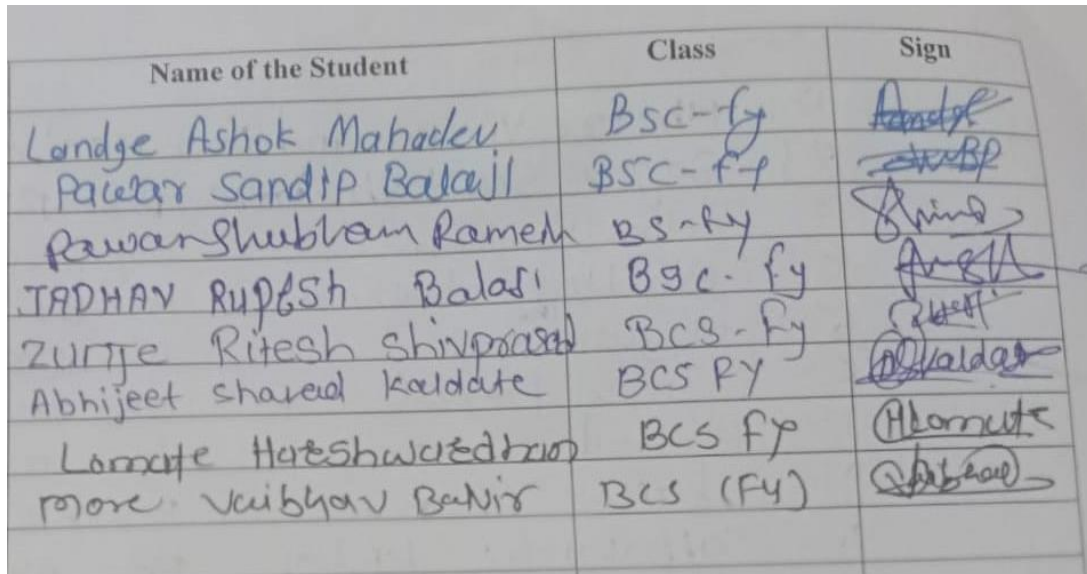 Name of the Student Class Sign
Landge Ashok Mahadev Bsc-fy
Pawar Sandip Balaji BSC-fy
Pawar Shubham Ramesh BS-fy
JADHAV Rupesh Balaji Bsc-fy
Zunje Ritesh Shivprasad BCS-Fy
Abhijeet Sharad Kaldate BCS FY Kaldate
Lomate BCS FY Lomate
More Vaibhav BCS (FY)